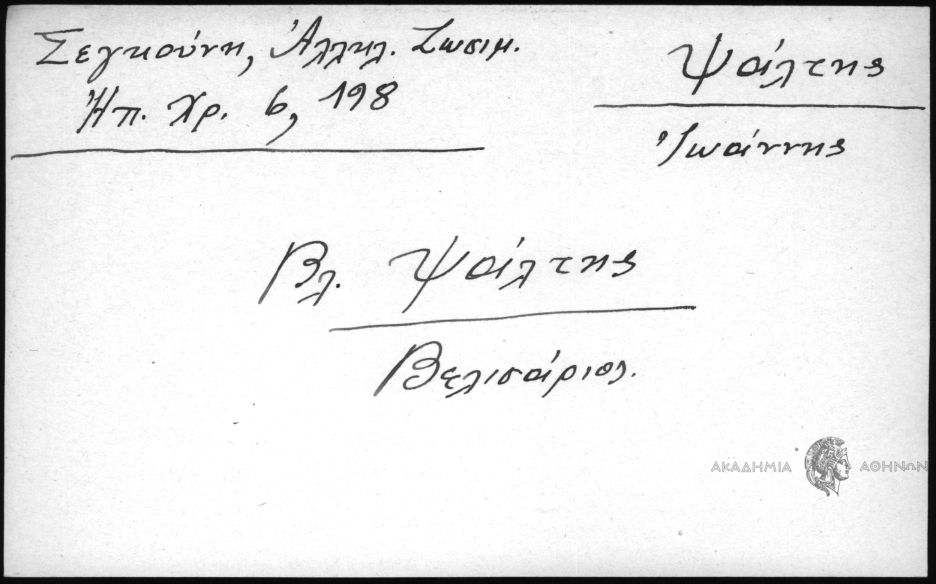 Σεγκούνη, Ἀλληλ. Ζωσιμ.
Ἠπ. Χρ. 6, 198
Ψάλτης
Ἰωάννης
Βλ. Ψάλτης
Βελισάριος.
ΑΚΑΔΗΜΙΑ ΑΘΗΝΩΝ